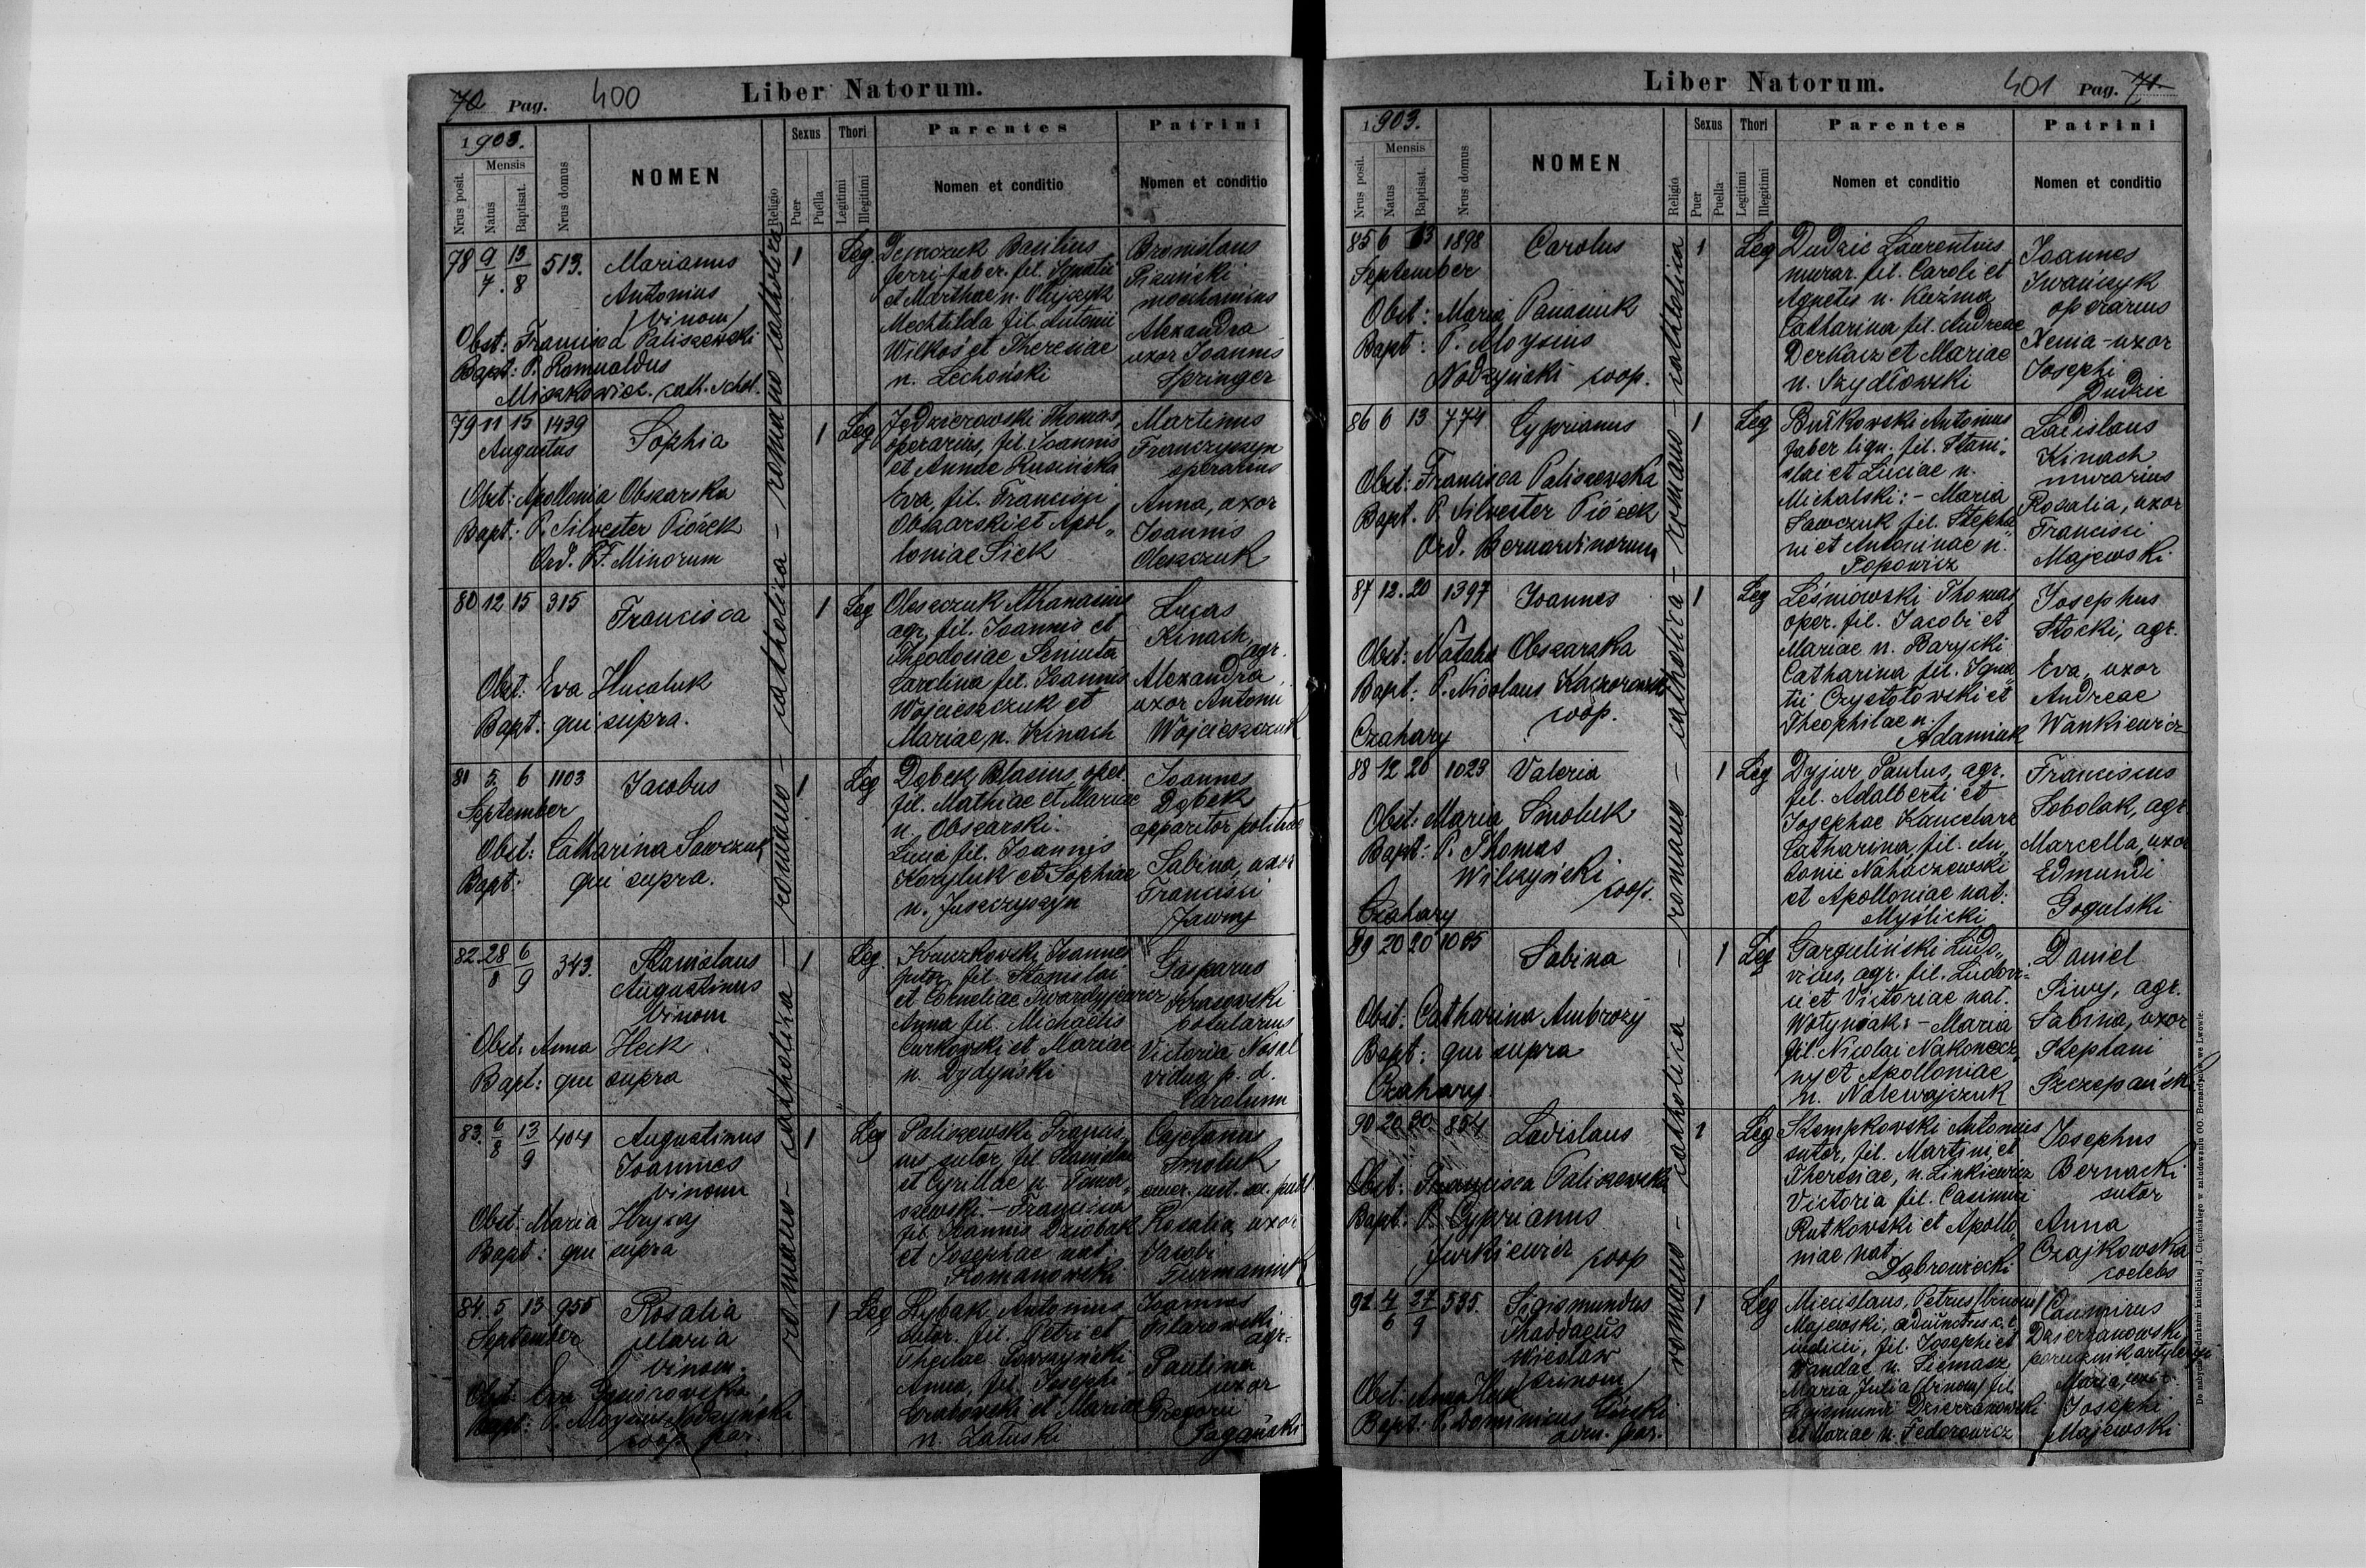 70 Pag. 400 Liber Natorum.
1903.
Nrus posit.
Mensis
Natus
Baptisat.
Nrus domus
NOMEN
Religio
Sexus
Puer
Puella
Thori
Legitimi
Illegitimi
Parentes
Nomen et conditio
Patrini
Nomen et conditio
romano - catholica - romano - catholica - romano catholica
78 9/7 13/8 513. Marianus
Antonius
/binom/
Obst: Francisca Paliszewski
Bapt: P. Romualdus
Miszkowicz. cath. schol.
1 Leg
Basilius
ferri-faber. fil. Ignatii
et Marthae n. Olejczyk
Mechtilda fil. Antonii
Wilkoś et Theresiae
n. Lechoński
Bronislaus
mechanicus
Alexandra
uxor Joannis
Springer
79 11 15 1439 Sophia
Augustus
Obst: Apollonia Obszarska
Bapt: P. Silvester Piórek
Ord. P.F. Minorum
1 Leg
Jędzierowski Thomas,
operarius, fil. Joannis
et Annae Rusińska
Eva, fil. Francisci
Obszarski et Apol„
loniae Siek
Martinus
Franczyszyn
operarius
Anna, uxor
Joannis
Oleszczuk
80 12 15 315 Francisca
Obst: Eva Hucaluk
Bapt: qui supra.
1 Leg
Oleszczuk Athanasius
agr. fil. Joannis et
Theodosiae Seniuta
Carolina fil. Joannis
Wojcieszczuk et
Mariae n. Kinach
Lucas
Kinach, agr.
Alexandra
uxor Antonii
Wojcieszczuk
81 5 6 1103 Jacobus
September
Obst: Catharina Sawczuk
Bapt: qui supra.
1 Leg
Dębek Blasius, oper.
fil. Mathiae et Mariae
n. Obszarski.
Lucia fil. Joannis
Koryluk et Sophiae
n. Juszczyszyn
Joannes
Dębek
apparitor politiae
Sabina, uxor
Francisci
Jawny
82. 28/8 6/9 343. Stanislaus
Augustinus
binom
Obst: Anna Heck
Bapt: qui supra
1 Leg.
Kruczkowski Joannes
sutor, fil. Stanislai
et Corneliae Twardyjewicz
Anna fil. Michaelis
Curkowski et Mariae
n. Dydyński
Gasparus
Krasowski
Victoria Nosal
vidua p. d.
Carolum
83. 6/8 13/9 404 Augustinus
Joannes
binom
Obst: Maria Hrycaj
Bapt: qui supra
1 Leg
Paliszewski
sutor, fil. Stanislai
et Cyrillae n. Toma„
szewski. - Francisca
fil. Joannis Dziobak
et Josephae nat.
Romanowski
Cajetanus
Smoluk
Rosalia, uxor
Jacobi
Furmaniuk
84. 5 13 955 Rosalia
September
Maria
binom.
Obst: Eva Gąsiorowska
Bapt: P. Aloysius Nodzyński
coop. par.
1 Leg
Rybak Antonius
fil. Petri et
Theclae
Anna, fil. Josephi
et Mariae
n. Załuski
Joannes
agr.
Paulina
uxor
Gregorii
Pagański
Liber Natorum. 401 Pag. 71
1903.
Nrus posit.
Mensis
Natus
Baptisat.
Nrus domus
NOMEN
Religio
Sexus
Puer
Puella
Thori
Legitimi
Illegitimi
Parentes
Nomen et conditio
Patrini
Nomen et conditio
romano - catholica - romano - catholica - romano - catholica
85 6 13 1898 Carolus
September
Obst: Maria Panasiuk
Bapt: P. Aloysius
Nodzyński coop.
1 Leg
Dudzic Laurentius
murar. fil. Caroli et
Agnetis n. Kuźma
Catharina fil. Andreae
Derkacz et Mariae
n. Szydłowski
Joannes
Iwańczyk
operarius
Xenia - uxor
Josephi
Dudzic
86 6 13 774 Cyprianus
Obst: Francisca Paliszewska
Bapt. P. Silvester Piórek
Ord. Bernardinorum
1 Leg
Butkowski Antonius
faber lign. fil. Stani„
slai et Luciae n.
Michalski: - Maria
Sawczuk fil. Stepha„
ni et Antoninae n.
Popowicz
Ladislaus
Kinach
murarius
Rosalia, uxor
Francisci
Majewski
87 12. 20 1397 Joannes
Obst: Natalia Obszarska
Bapt: P. Nicolaus Kaczorowski
coop.
Czahary
1 Leg
Leśniowski Thomas
oper. fil. Jacobi et
Mariae n. Barycki
Catharina fil. Igna„
tii Czystołowski et
Theophilae n.
Adamiuk
Josephus
Stocki, agr.
Eva, uxor
Andreae
Wankiewicz
88 12 20 1023 Valeria
Obst: Maria Smoluk
Bapt: P. Thomas
Wilczyński
coop.
Czahary
1 Leg
Dyjur Paulus, agr.
fil. Adalberti et
Josephae Kancelarz
Catharina fil. An„
tonii Nahaczewski
et Apolloniae nat.
Myślicki
Franciscus
Sobolak, agr.
Marcella, uxor
Edmundi
Gogulski
89 20 20 1085 Sabina
Obst: Catharina Ambroży
Bapt: qui supra
Czahary.
1 Leg
Garguliński Ludo„
vicus, agr. fil. Ludovi=
ci et Victoriae nat.
Wołyniak: - Maria
fil. Nicolai Nakonecz„
ny et Apolloniae
n. Nalewajczuk
Daniel
Siwy, agr.
Sabina, uxor
Stephani
Szczepański
90 20 20. 854 Ladislaus
Obst: Francisca Paliszewska
Bapt: P. Cyprianus
Jurkiewicz coop
1 Leg
Szempkowski Antonius
sutor, fil. Martini et
Theresiae, n. Linkiewicz
Victoria fil. Casimiri
Rutkowski et Apollo„
niae nat.
Dąbrowiecki
Josephus
Bernacki
sutor
Anna
Czajkowska
coelebs
92 4/6 27/9 535. Sigismundus
Thaddaeus
Wiesław
/trinom/
Obst: Anna Heck
Bapt: P. Dominicus
adm. par.
1 Leg
Miecislaus, Petrus /binom/
Majewski, adiunctus c. r.
iudicii, fil. Josephi et
Wandae n. Siemasz
Maria Julia /binom/ fil.
Sigismundi Dzierżanowski
et Mariae n. Fedorowicz
Casimirus
Dzierżanowski,
porucznik artyleryi
Maria, uxor
Josephi
Majewski
Do nabycia w drukarni katolickiej J. Chęcińskiego w zabudowaniu OO. Bernardynów we Lwowie.